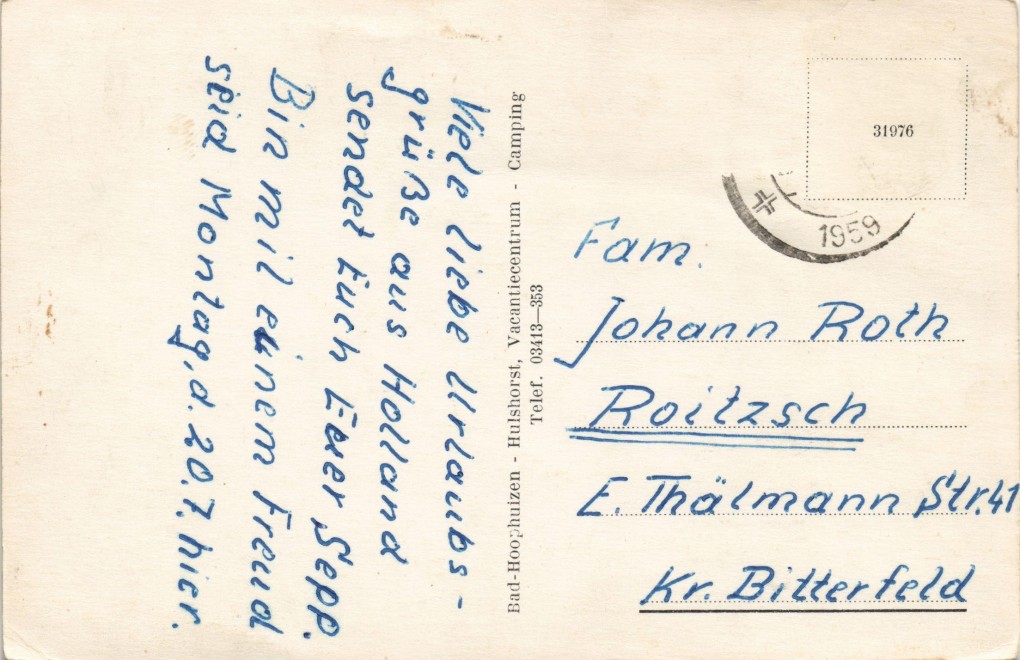 Viele liebe Urlaubs-
grüße aus Holland
sendet Euch Euer Sepp.
Bin mit einem Freud
seid Montag, d. 20.7. hier.
Bad-Hoophuizen - Hulshorst, Vacantiecentrum - Camping
Telef. 03413—353
31976
1959
Fam.
Johann Roth
Roitzsch
E. Thälmann Str. 41
Kr. Bitterfeld